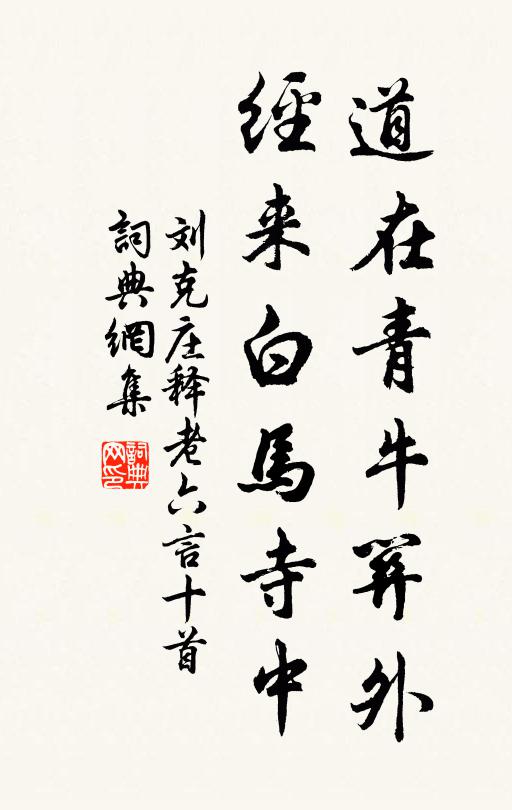 道在青牛關外
經来白馬寺中
刘克庄释老六言十首
詞典網集
詞典網印